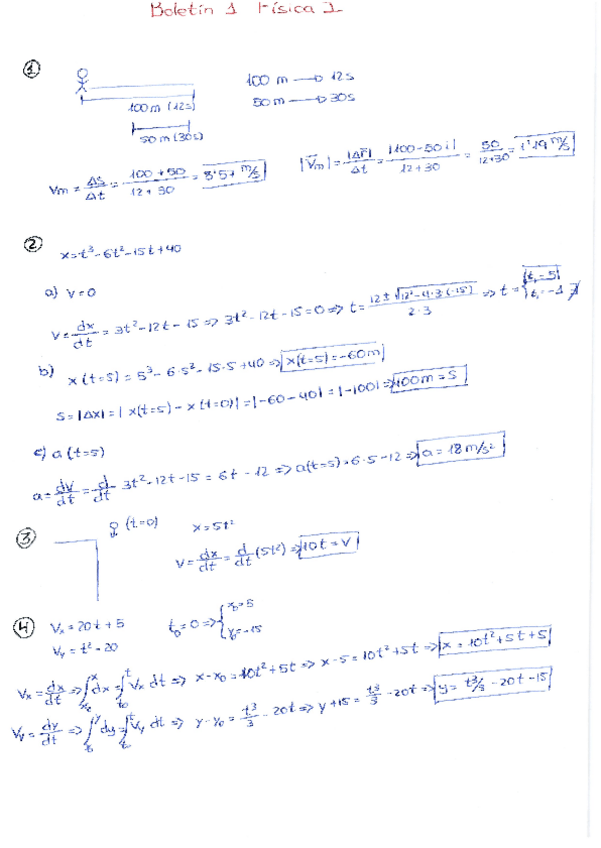 Boletín 1 Física I
①
100 m → 12s
50 m → 30s
100 m (12s)
50 m (30s)
Vm = Δs/Δt = (100 + 50)/(12 + 30) = 3'57 m/s
|V̄m| = |Δr̄|/Δt = |100 - 50 i|/(12 + 30) = 50/(12+30) = 1'19 m/s
②
x = t³ - 6t² - 15t + 40
a) v = 0
v = dx/dt = 3t² - 12t - 15 ⇒ 3t² - 12t - 15 = 0 ⇒ t = (12 ± √(12² - 4·3·(-15)))/(2·3) ⇒ t = { t₁ = 5 t₁ = -1 ∄
b) x(t=5) = 5³ - 6·5² - 15·5 + 40 ⇒ x(t=5) = -60m
S = |Δx| = |x(t=5) - x(t=0)| = |-60 - 40| = |-100| ⇒ 100m = S
c) a(t=5)
a = dv/dt = d/dt 3t² - 12t - 15 = 6t - 12 ⇒ a(t=5) = 6·5 - 12 ⇒ a = 18 m/s²
③
(t=0) x = 5t²
v = dx/dt = d/dt (5t²) ⇒ 10t = v
④
Vx = 20t + 5 t₀ = 0 ⇒ { x₀ = 5
Vy = t² - 20 y₀ = -15
Vx = dx/dt ⇒ ∫ₓ₀ˣ dx = ∫ₜ₀ᵗ Vx dt ⇒ x - x₀ = 10t² + 5t ⇒ x - 5 = 10t² + 5t ⇒ x = 10t² + 5t + 5
Vy = dy/dt ⇒ ∫ dy = ∫ₜ₀ᵗ Vy dt ⇒ y - y₀ = t³/3 - 20t ⇒ y + 15 = t³/3 - 20t ⇒ y = t³/3 - 20t - 15